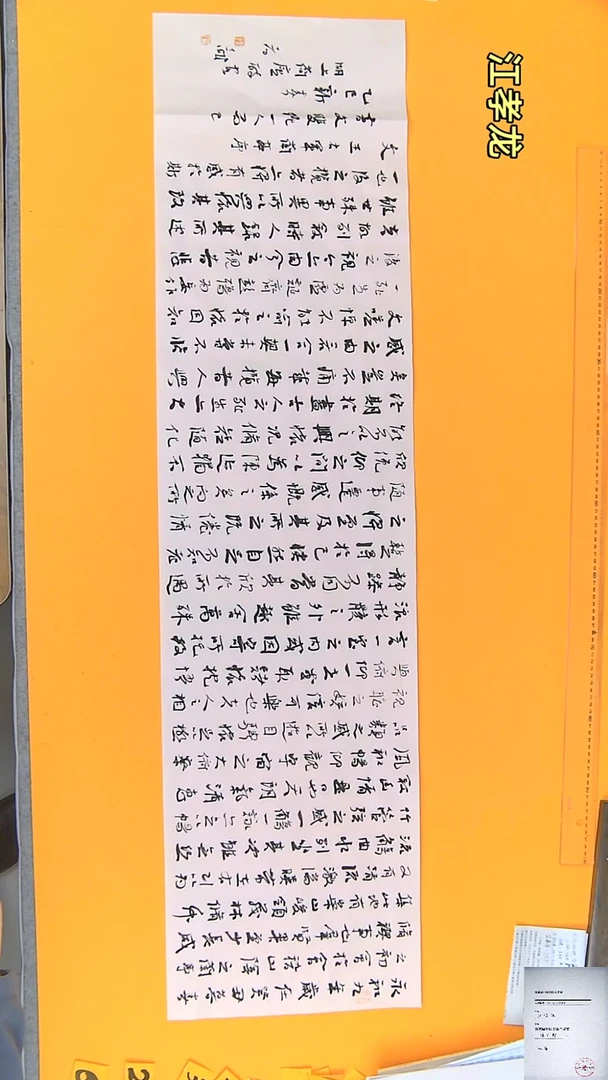 江孝龙
永和九年歲在癸丑暮春
之初會於會稽山陰之蘭亭
脩禊事也羣賢畢至少長咸
集此地有崇山峻領茂林脩竹
又有清流激湍映帶左右引以為
流觴曲水列坐其次雖無絲
竹管弦之盛一觴一詠亦足以暢
敘幽情是日也天朗氣清惠
風和暢仰觀宇宙之大俯察
品類之盛所以遊目騁懷足以極
視聽之娛信可樂也夫人之相
與俯仰一世或取諸懷抱悟
言一室之內或因寄所託放
浪形骸之外雖趣舍萬殊
靜躁不同當其欣於所遇
暫得於己快然自足不知老
之將至及其所之既倦情
隨事遷感慨係之矣向之所
欣俛仰之間以為陳迹猶不
能不以之興懷況脩短隨化
終期於盡古人云死生亦大
矣豈不痛哉每攬昔人興
感之由若合一契未嘗不臨
文嗟悼不能喻之於懷固知
一死生為虛誕齊彭殤為妄作
後之視今亦由今之視昔悲
夫故列敘時人錄其所述
雖世殊事異所以興懷其致
一也後之攬者亦將有感於斯
文 王右軍蘭亭序
書文雙絕一人而已
乙巳新春